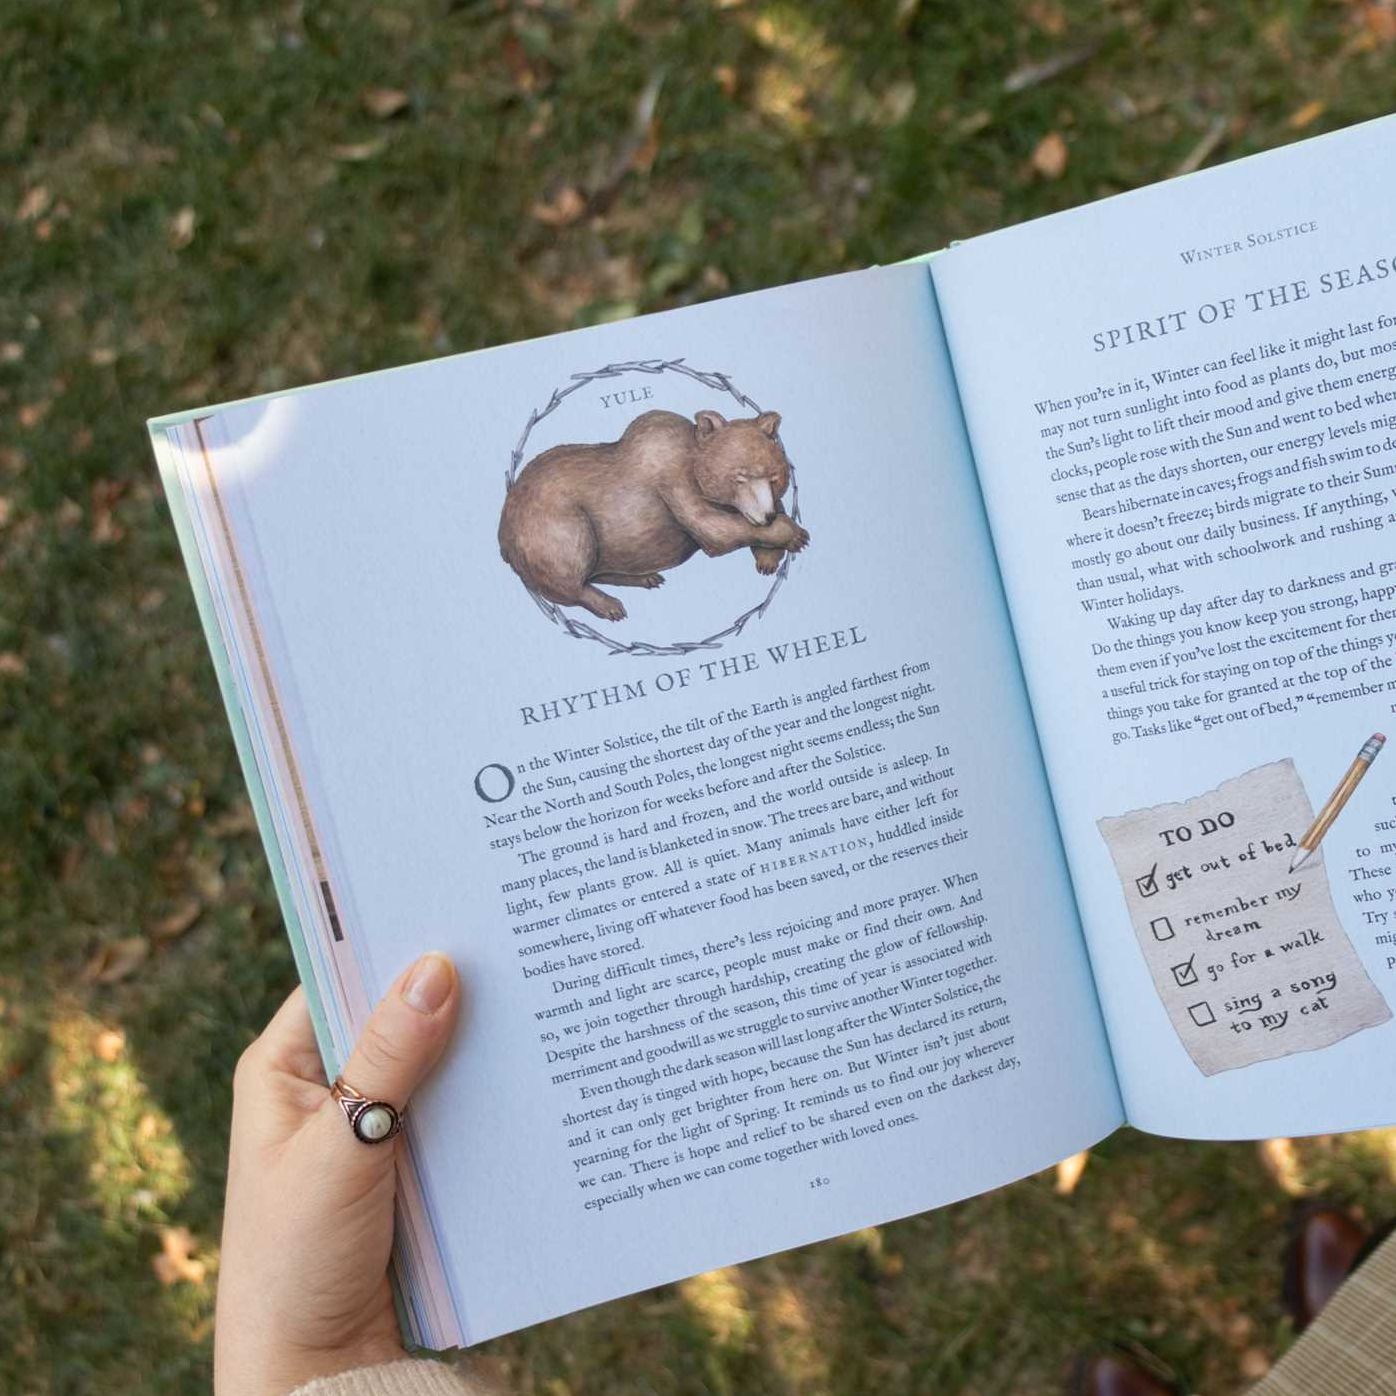 YULE
RHYTHM OF THE WHEEL
On the Winter Solstice, the tilt of the Earth is angled farthest from
the Sun, causing the shortest day of the year and the longest night.
Near the North and South Poles, the longest night seems endless; the Sun
stays below the horizon for weeks before and after the Solstice.
The ground is hard and frozen, and the world outside is asleep. In
many places, the land is blanketed in snow. The trees are bare, and without
light, few plants grow. All is quiet. Many animals have either left for
warmer climates or entered a state of HIBERNATION, huddled inside
somewhere, living off whatever food has been saved, or the reserves their
bodies have stored.
During difficult times, there's less rejoicing and more prayer. When
warmth and light are scarce, people must make or find their own. And
so, we join together through hardship, creating the glow of fellowship.
Despite the harshness of the season, this time of year is associated with
merriment and goodwill as we struggle to survive another Winter together.
Even though the dark season will last long after the Winter Solstice, the
shortest day is tinged with hope, because the Sun has declared its return,
and it can only get brighter from here on. But Winter isn't just about
yearning for the light of Spring. It reminds us to find our joy wherever
we can. There is hope and relief to be shared even on the darkest day,
especially when we can come together with loved ones.
180
WINTER SOLSTICE
SPIRIT OF THE
When you're in it, Winter can feel like it might last
may not turn sunlight into food as plants do, but
the Sun's light to lift their mood and give them
clocks, people rose with the Sun and went to bed
sense that as the days shorten, our energy levels
Bears hibernate in caves; frogs and fish swim to
where it doesn't freeze; birds migrate to their
mostly go about our daily business. If anything,
than usual, what with schoolwork and rushing
Winter holidays.
Waking up day after day to darkness and
Do the things you know keep you strong,
them even if you've lost the excitement for
a useful trick for staying on top of the things
things you take for granted at the top of the
go. Tasks like “get out of bed,” “remember
TO DO
get out of bed
remember my
dream
go for a walk
sing a song
to my cat
to
These
who
Try